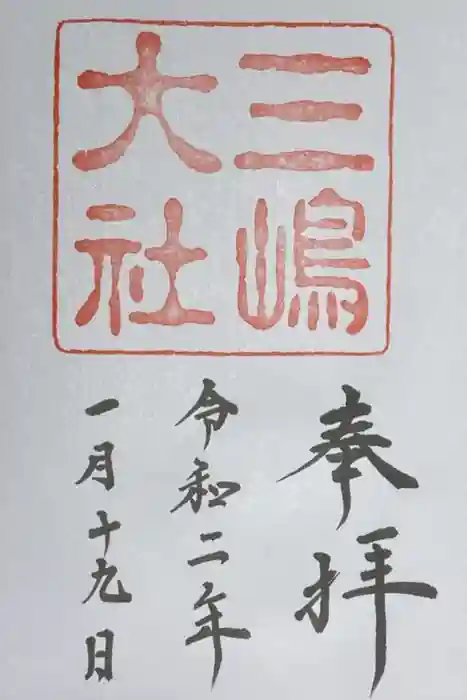 三嶋
大社
奉拝
令和二年
一月十九日